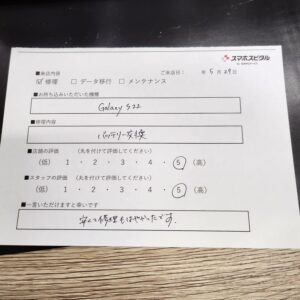 スマホスピタル
■来店内容
ご来店日： 年 5 月 29 日
☑ 修理 □ データ移行 □ メンテナンス
■お持ち込みいただいた機種
Galaxy S22
■修理内容
バッテリー交換
■店舗の評価 （丸を付けて評価してください）
（低） 1 ・ 2 ・ 3 ・ 4 ・ 5 （高）
■スタッフの評価 （丸を付けて評価してください）
（低） 1 ・ 2 ・ 3 ・ 4 ・ 5 （高）
■一言いただけますと幸いです
安くて修理もはやかったです。